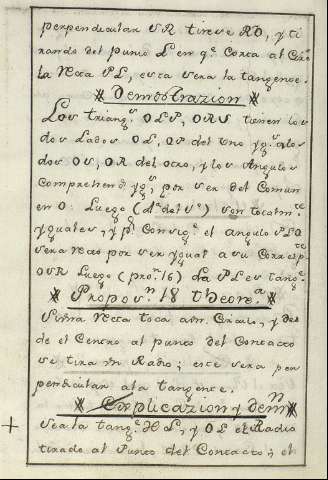 perpendicular SR tirese RO, y ti
rando del punto L en q.e Corta al Circ.o
la recta PL, esta sera la tangente.
Demostrazion
Los triang.s OLP, ORS tienen los
dos Lados OL, OP del uno yg.s alos
dos OS, OR del otro, y los Angulos
comprehend.s yg.s, por ser del Comun
en O. Luego son totalm.te
yguales, y p.r Consig.te el angulo PLO
sera recto por ser ygual a su Corresp.te
OSR Luego (pro.n 16) la PL es tang.e
Propos.n 18 theore.a
Si una recta toca a un Circulo, y des
de el Centro al punto del Contacto
se tira un Radio; este sera per
pendicular ala tangente.
Explicazion y dem.n
Sea la tang.e HL, y OL el Radio
tirado al Punto del Contacto; el